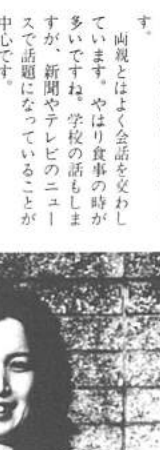 す。
　両親とはよく会話を交わし
ています。やはり食事の時が
多いですね。学校の話もしま
すが、新聞やテレビのニュー
スで話題になっていることが
中心です。